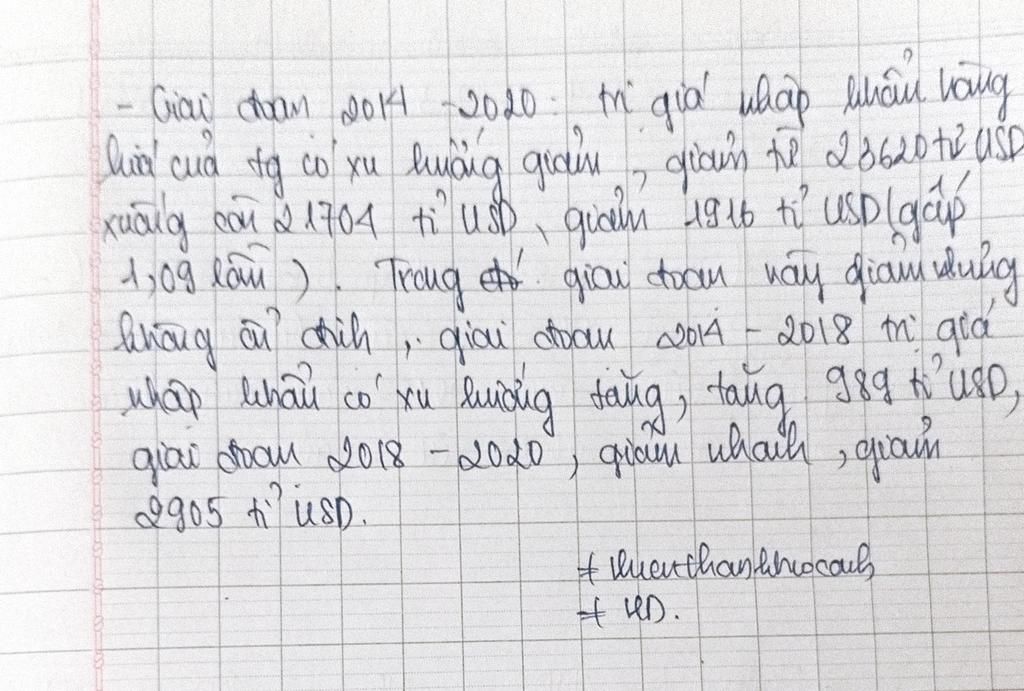 - Giai đoạn 2014 - 2020: trị giá nhập khẩu hàng
hoá của tg có xu hướng giảm, giảm từ 23620 tỉ USD
xuống còn 21704 tỉ USD, giảm 1916 tỉ USD (gấp
1,09 lần). Trong giai đoạn này giảm nhưng
không ổn định, giai đoạn 2014 - 2018 trị giá
nhập khẩu có xu hướng tăng, tăng 989 tỉ USD,
giai đoạn 2018 - 2020, giảm nhanh, giảm
2905 tỉ USD.